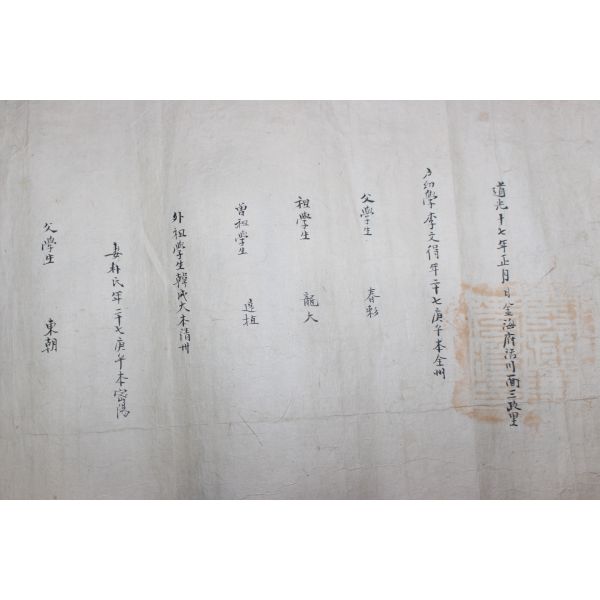 道光十七年正月 日金海府活川面三政里
幼學李文絹年二十七庚午本全州
父學生 春彩
祖學生 龍大
曾祖學生 進植
外祖學生韓成大本清州
妻朴氏年二十七庚午本密陽
父學生 東朝